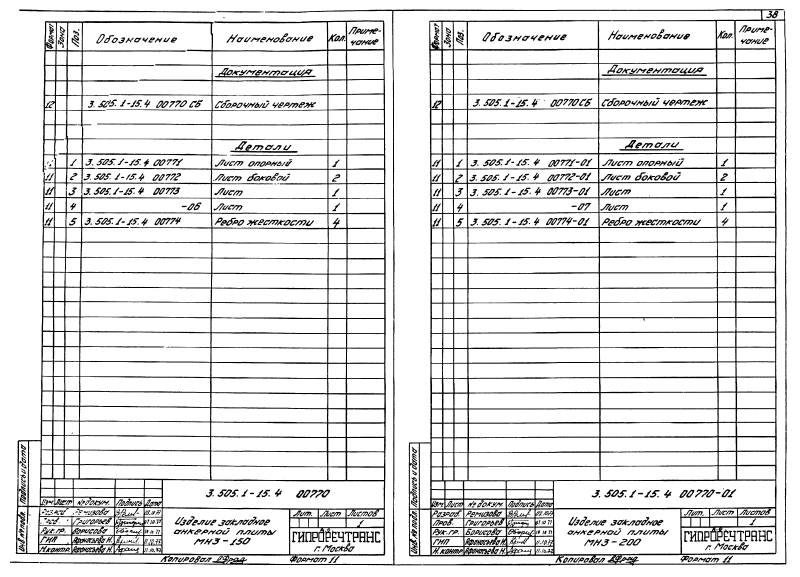 38
Формат Зона Поз. Обозначение Наименование Кол. Приме-чание
Документация
12 3.505.1-15.4 00770 СБ Сборочный чертеж
Детали
1 3.505.1-15.4 00771 Лист опорный 1
11 2 3.505.1-15.4 00772 Лист боковой 2
11 3 3.505.1-15.4 00773 Лист 1
11 4 -06 Лист 1
11 5 3.505.1-15.4 00774 Ребро жесткости 4
3.505.1-15.4 00770
Изм. Лист № докум. Подпись Дата
Ремизова
Григорьев
Рук. гр. Борисова
ГИП Афонасьева Н.
Н.контр. Афонасьева Н.
Изделие закладное
анкерной плиты
МН3-150
Лит. Лист Листов
1
ГИПРОРЕЧТРАНС
г. Москва
Инв. № подл. Подпись и дата
Копировал Формат 11
Формат Зона Поз. Обозначение Наименование Кол. Приме-чание
Документация
12 3.505.1-15.4 00770 СБ Сборочный чертеж
Детали
11 1 3.505.1-15.4 00771-01 Лист опорный 1
11 2 3.505.1-15.4 00772-01 Лист боковой 2
11 3 3.505.1-15.4 00773-01 Лист 1
11 4 -07 Лист 1
11 5 3.505.1-15.4 00774-01 Ребро жесткости 4
3.505.1-15.4 00770-01
Изм. Лист № докум. Подпись Дата
Разраб. Ремизова
Пров. Григорьев
Рук. гр. Борисова
ГИП Афонасьева Н.
Н.контр. Афонасьева Н.
Изделие закладное
анкерной плиты
МН3-200
Лит. Лист Листов
1
ГИПРОРЕЧТРАНС
г. Москва
Инв. № подл. Подпись и дата
Копировал Формат 11